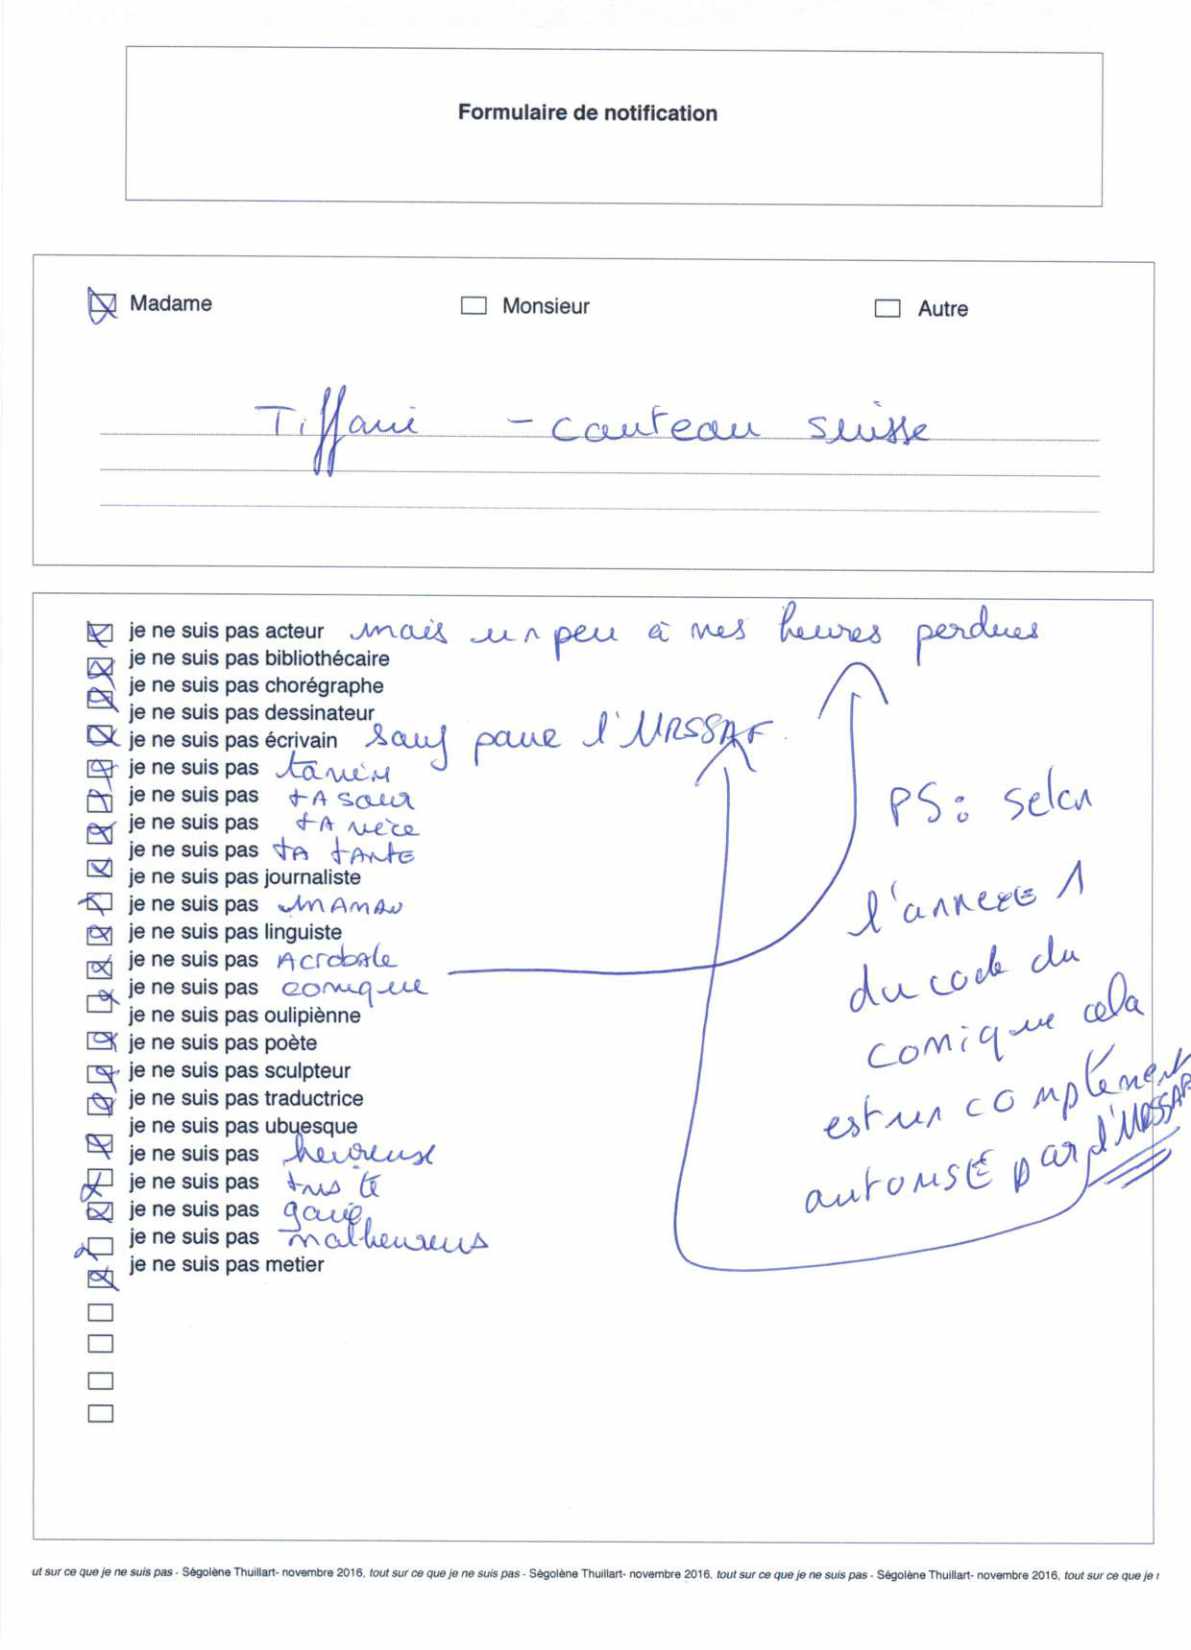 Formulaire de notification
Madame Monsieur Autre
Tiffani - couteau suisse
je ne suis pas acteur mais un peu à mes heures perdues
je ne suis pas bibliothécaire
je ne suis pas chorégraphe
je ne suis pas dessinateur
je ne suis pas écrivain sauf pour l'URSSAF.
je ne suis pas
je ne suis pas tA sœur
je ne suis pas tA mère
je ne suis pas tA tANtE
je ne suis pas journaliste
je ne suis pas mAmAN
je ne suis pas linguiste
je ne suis pas Acrobate
je ne suis pas comique
je ne suis pas oulipiènne
je ne suis pas poète
je ne suis pas sculpteur
je ne suis pas traductrice
je ne suis pas ubuesque
je ne suis pas heureuse
je ne suis pas triste
je ne suis pas gaie
je ne suis pas malheureus
je ne suis pas metier
PS: selon
l'annexe 1
du code du
comique cela
est un complément
autorisé par l'URSSAF
ut sur ce que je ne suis pas - Ségolène Thuillart- novembre 2016, tout sur ce que je ne suis pas - Ségolène Thuillart- novembre 2016. tout sur ce que je ne suis pas - Ségolène Thuillart- novembre 2016, tout sur ce que je